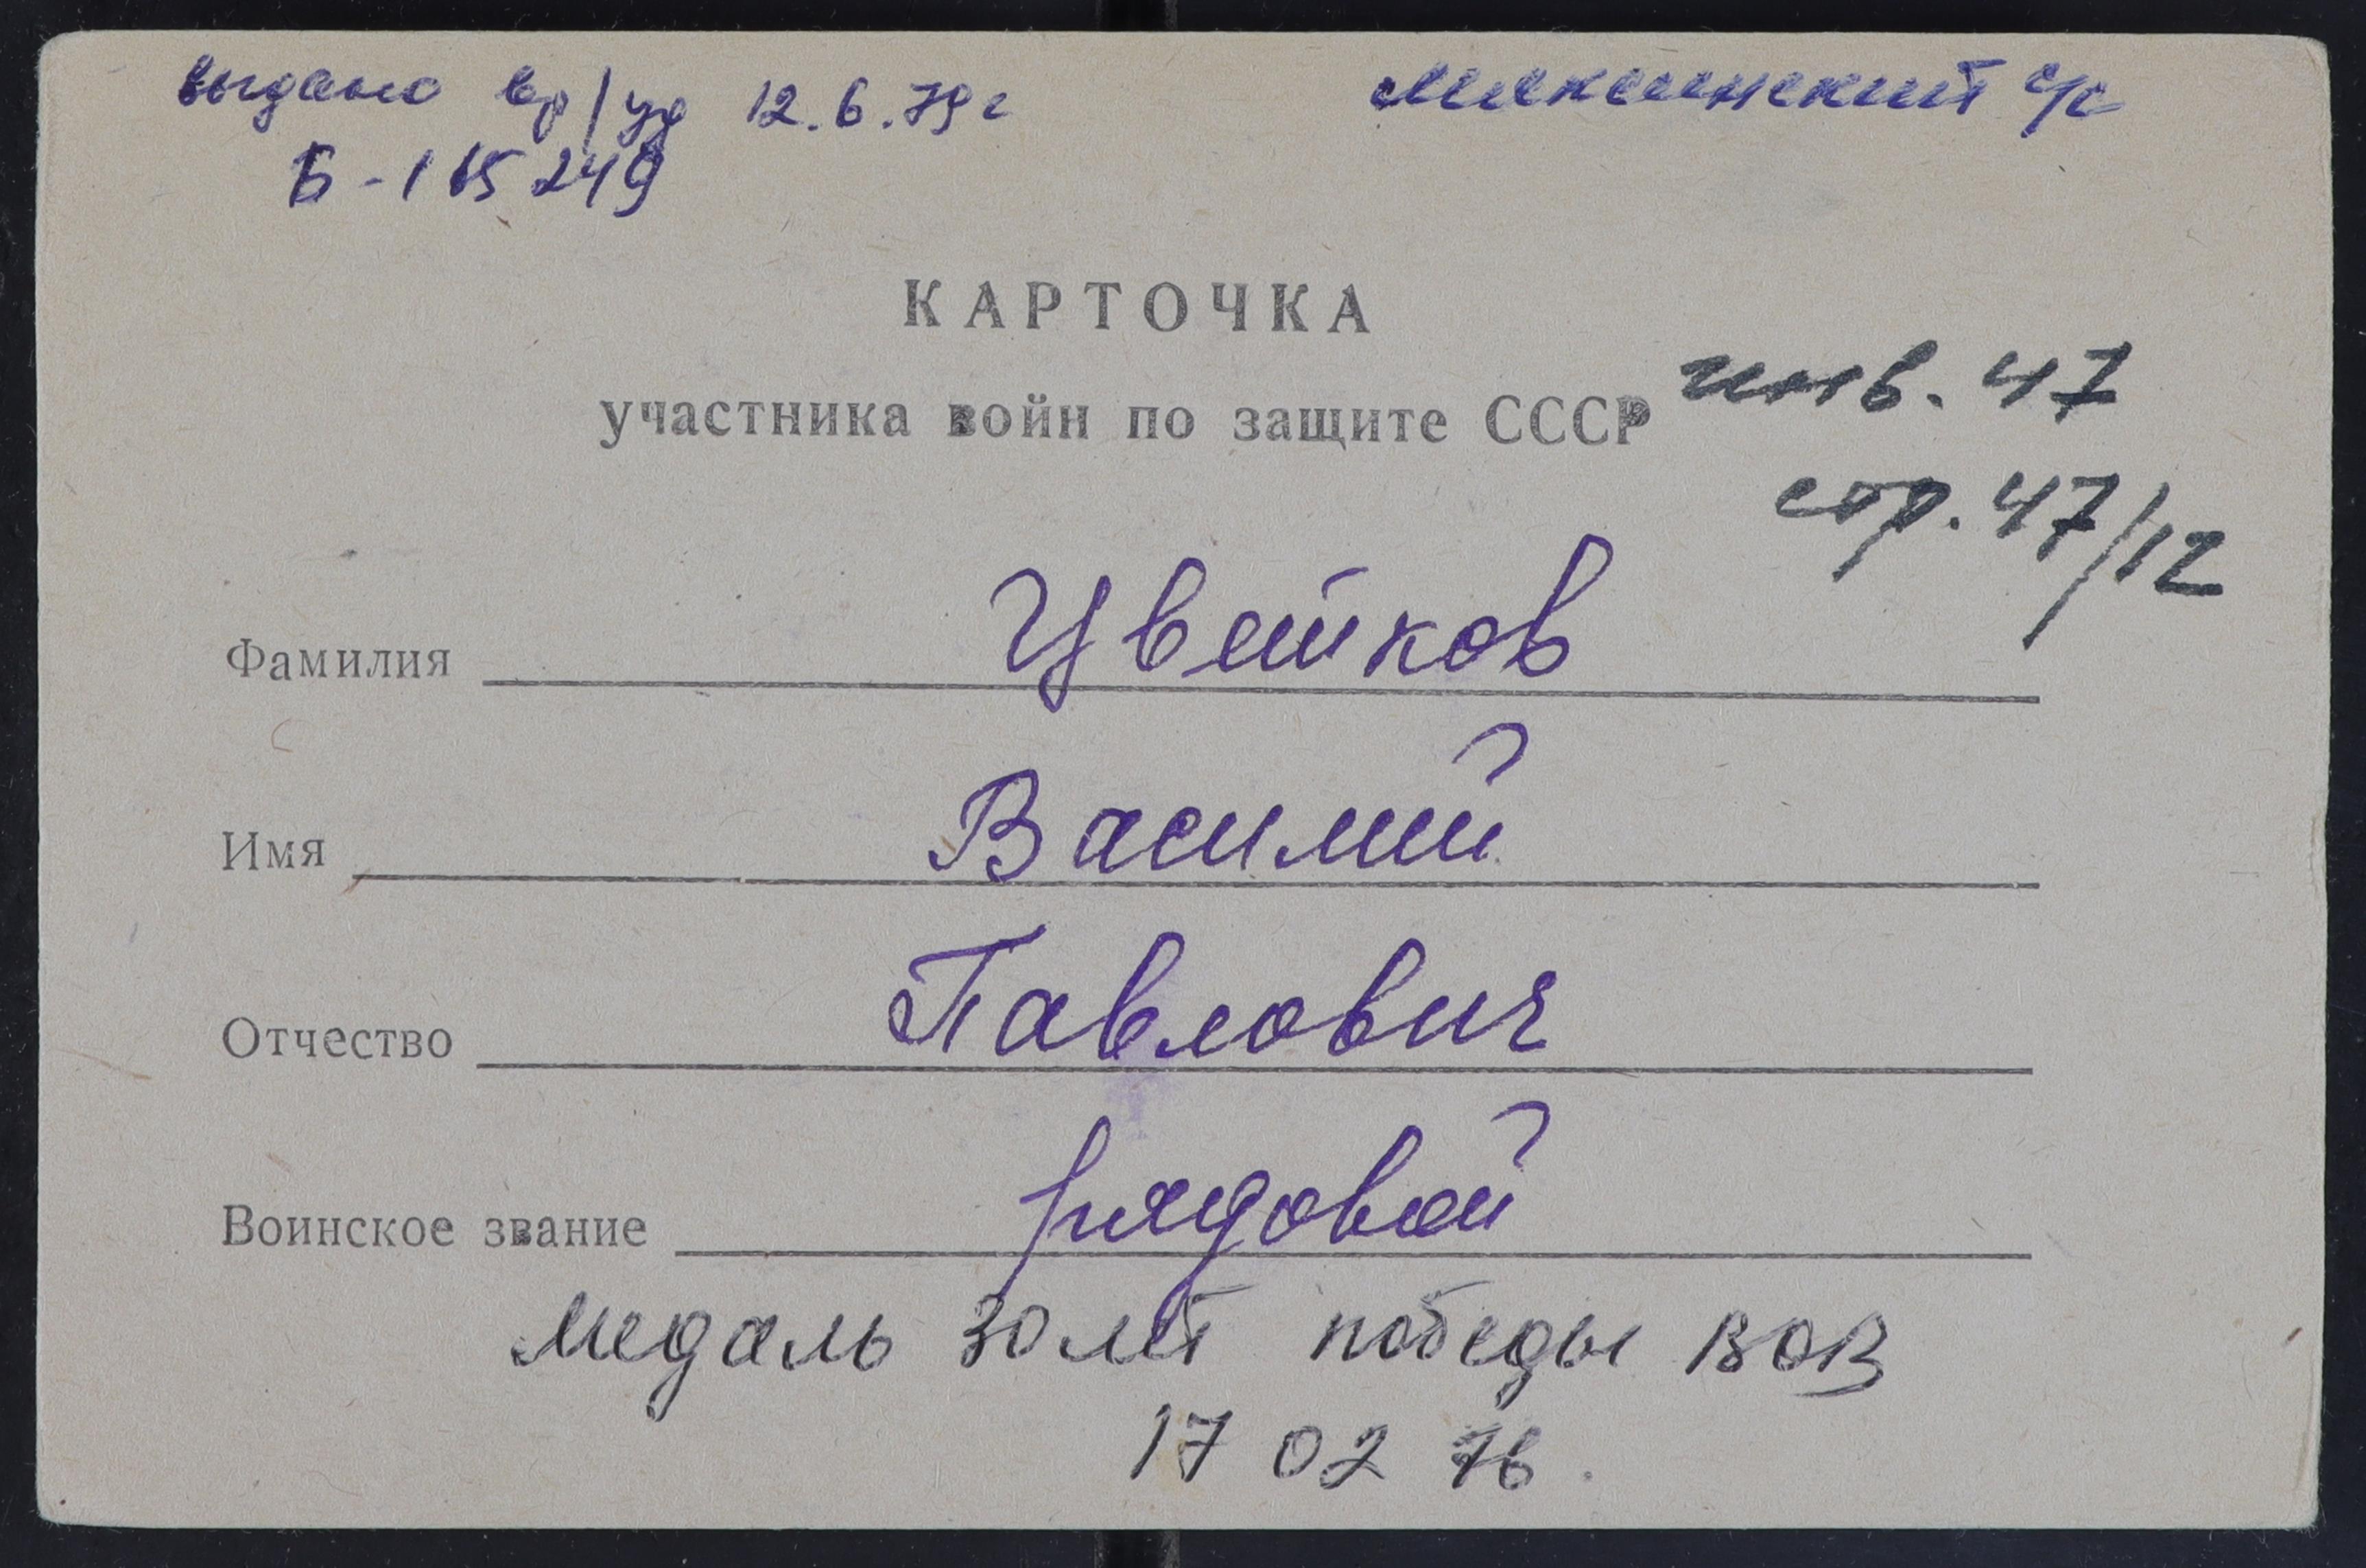 выдано вр/уд 12.6.79 г
Б-165249
Мяксинский с/с
КАРТОЧКА
участника войн по защите СССР
инв. 47
стр. 47/12
Фамилия Цветков
Имя Василий
Отчество Павлович
Воинское звание рядовой
Медаль 30 лет победы ВОВ
17 02 76.